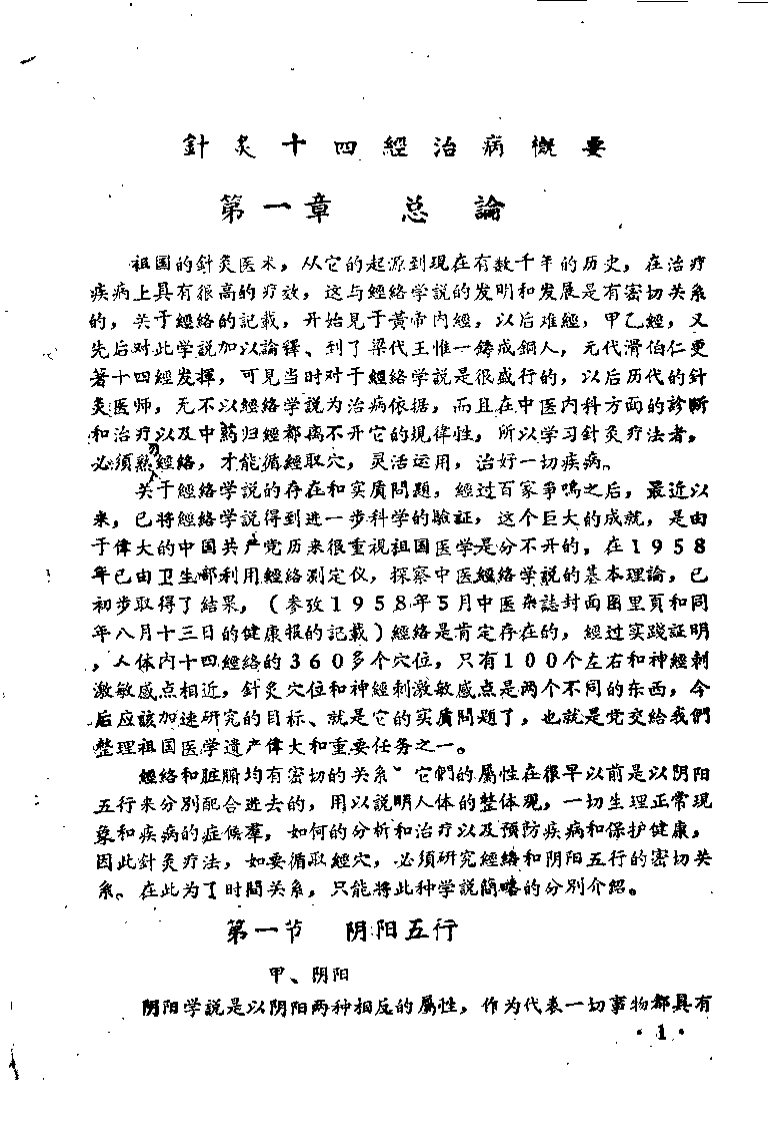 針灸十四經治病概要
第一章 总論
祖国的針灸医术，从它的起源到現在有数千年的历史，在治疗
疾病上具有很高的疗效，这与經絡学説的发明和发展是有密切关系
的，关于經絡的記載，开始見于黃帝內經，以后难經，甲乙經，又
先后对此学説加以論釋、到了梁代王惟一鋳成銅人，元代滑伯仁更
著十四經发揮，可見当时对于經絡学説是很盛行的，以后历代的針
灸医师，无不以經絡学説为治病依据，而且在中医内科方面的診断
和治疗以及中葯归經都离不开它的規律性，所以学习針灸疗法者，
必須熟經絡，才能循經取穴，灵活运用，治好一切疾病。
关于經絡学説的存在和实质問題，經过百家爭鳴之后，最近以
来，已将經絡学説得到进一步科学的驗証，这个巨大的成就，是由
于偉大的中国共产党历来很重視祖国医学是分不开的，在1958
年已由卫生部利用經絡測定仪，探察中医經絡学説的基本理論，已
初步取得了結果，（参攷1958年5月中医杂誌封面图里頁和同
年八月十三日的健康报的記載）經絡是肯定存在的，經过实践証明
，人体內十四經絡的360多个穴位，只有100个左右和神經刺
激敏感点相近，針灸穴位和神經刺激敏感点是两个不同的东西，今
后应該加速研究的目标、就是它的实质問題了，也就是党交給我們
整理祖国医学遺产偉大和重要任务之一。
經絡和脏腑均有密切的关系 它們的属性在很早以前是以阴阳
五行来分別配合进去的，用以説明人体的整体观，一切生理正常現
象和疾病的症候羣，如何的分析和治疗以及預防疾病和保护健康，
因此針灸疗法，如要循取經穴，必須研究經絡和阴阳五行的密切关
系。在此为了时間关系，只能将此种学説簡略的分別介紹。
第一节 阴阳五行
甲、阴阳
阴阳学說是以阴阳两种相反的屬性，作为代表一切事物都具有
·1·